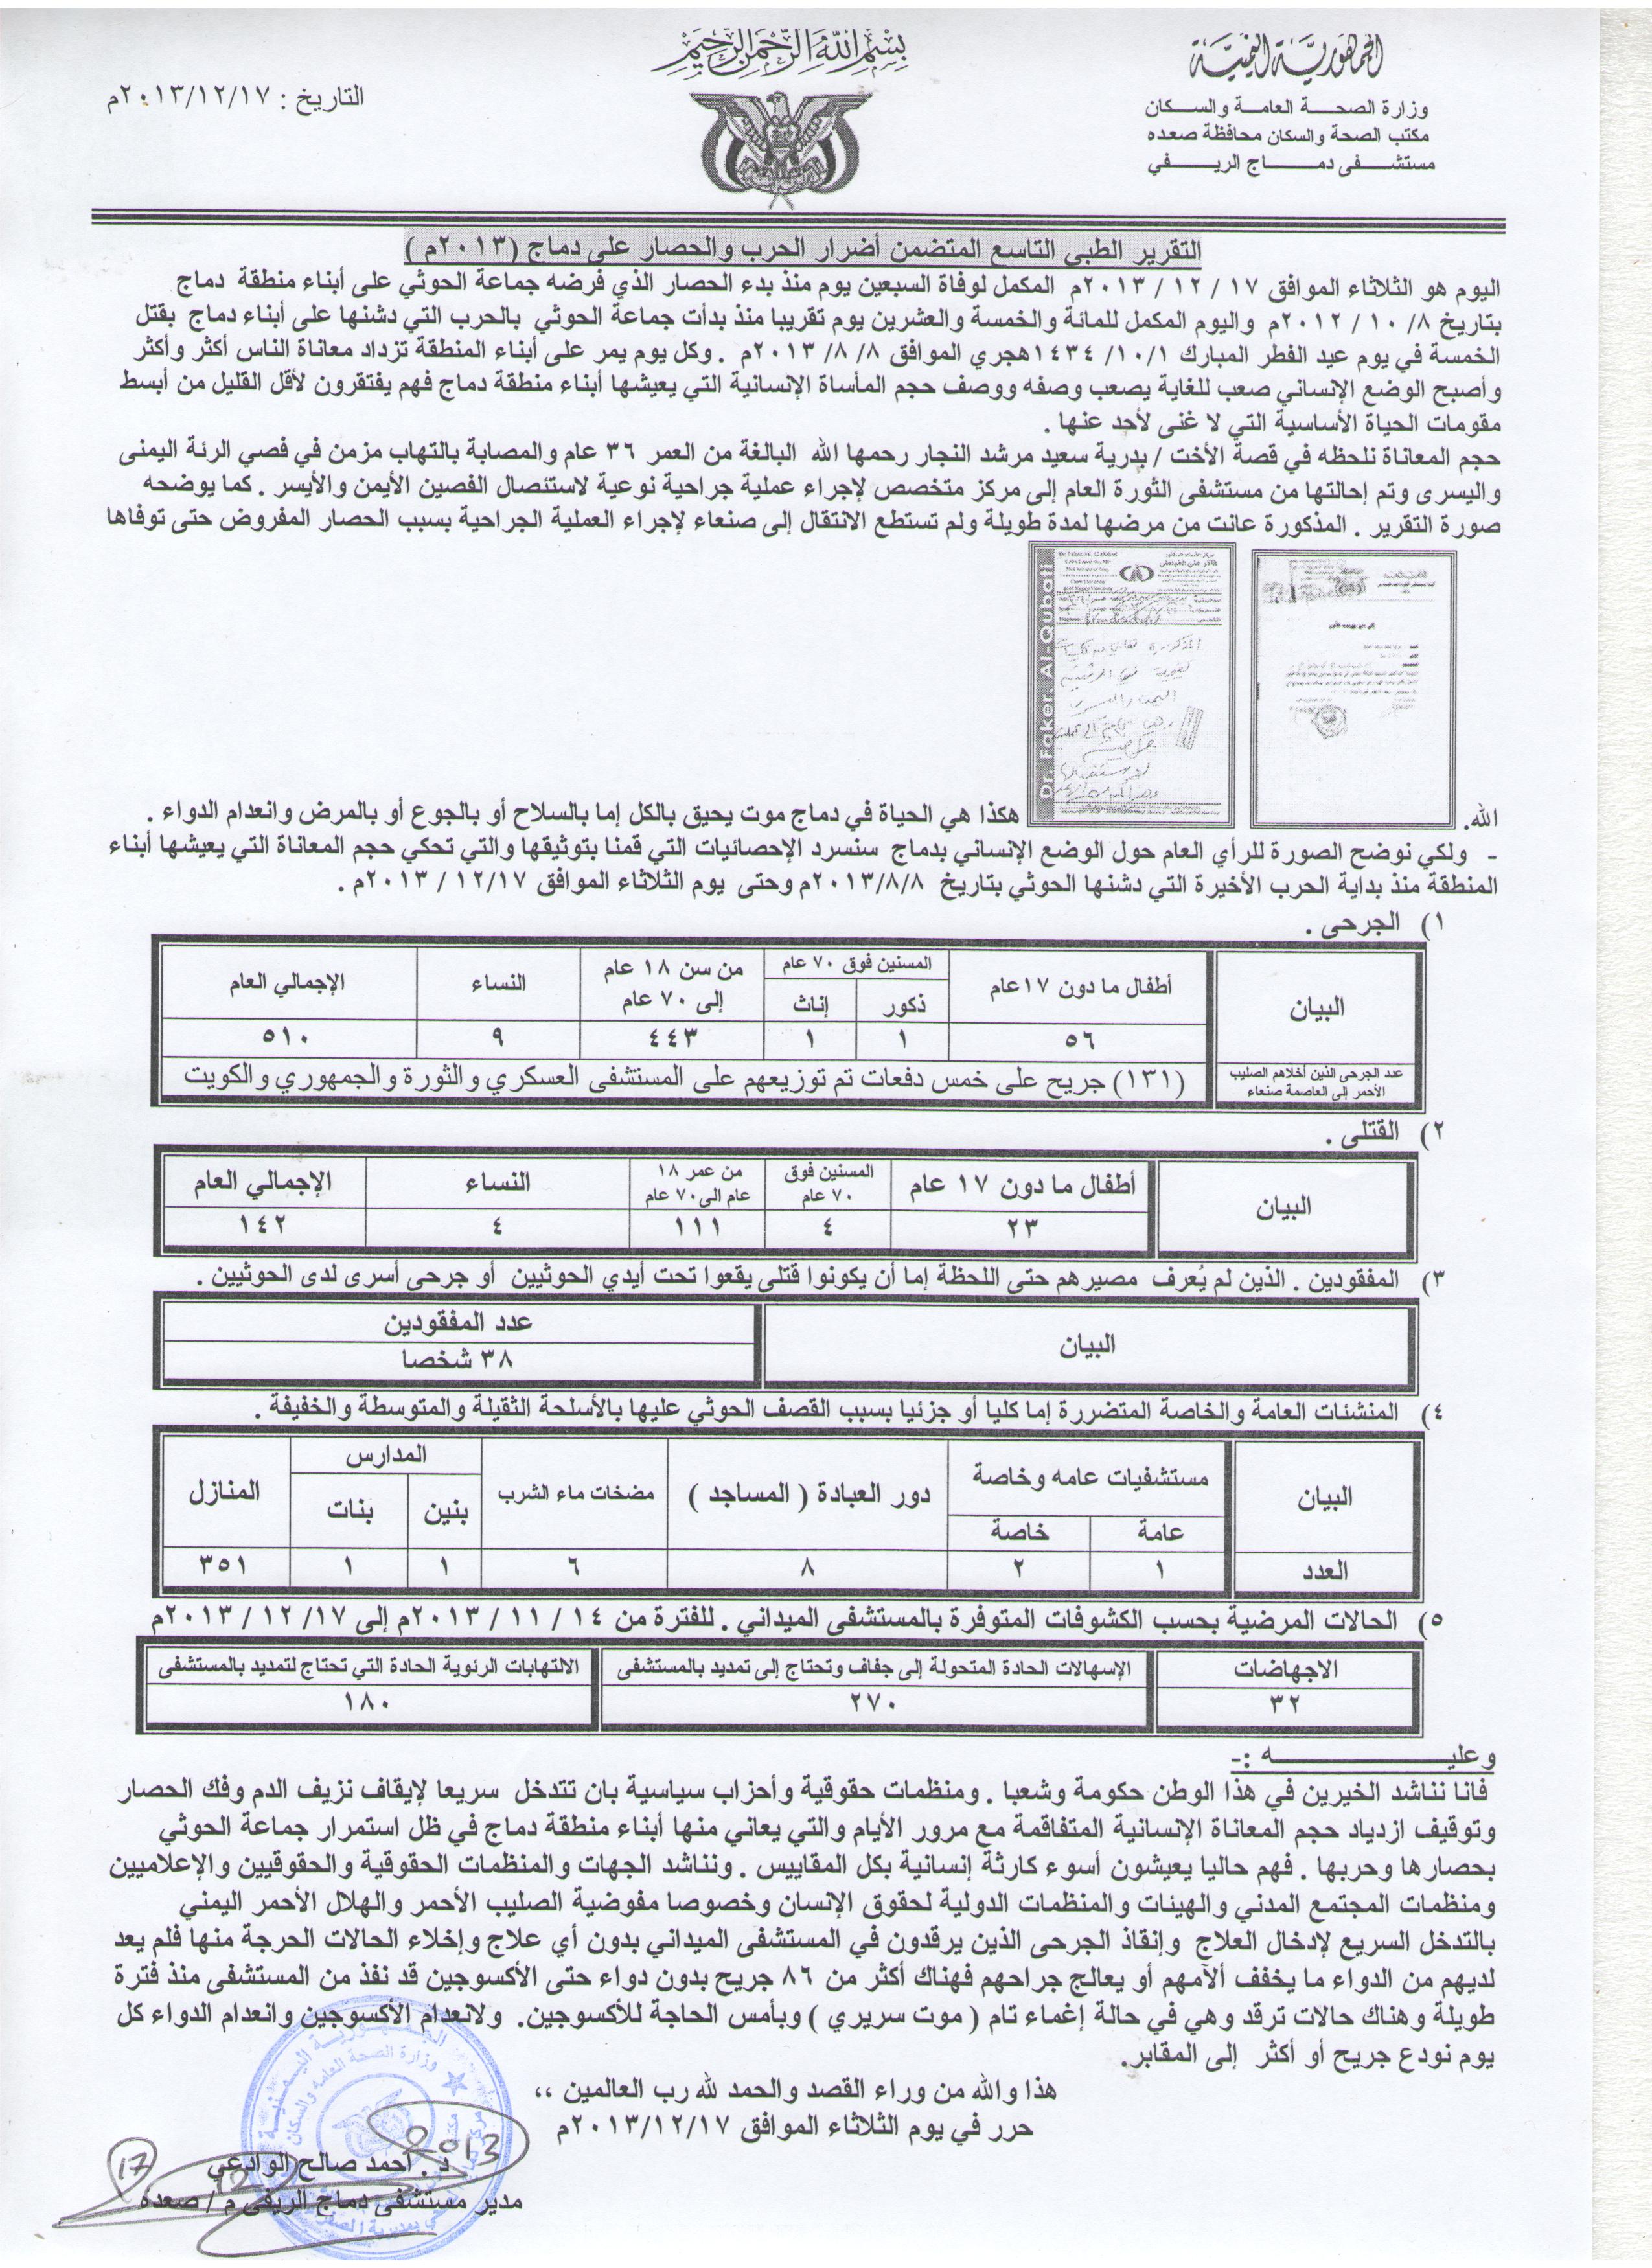 الجمهورية اليمنية
وزارة الصحـــة العامـــة والســـكان
مكتب الصحة والسكان محافظة صعده
مستشـــفى دمـــــاج الريـــــفي
بسم الله الرحمن الرحيم
التاريخ : ٢٠١٣/١٢/١٧م
التقرير الطبي التاسع المتضمن أضرار الحرب والحصار على دماج (٢٠١٣م )
اليوم هو الثلاثاء الموافق ١٧ / ١٢ / ٢٠١٣م المكمل لوفاة السبعين يوم منذ بدء الحصار الذي فرضه جماعة الحوثي على أبناء منطقة دماج
بتاريخ ٨/ ١٠ / ٢٠١٢م واليوم المكمل للمائة والخمسة والعشرين يوم تقريبا منذ بدأت جماعة الحوثي بالحرب التي دشنها على أبناء دماج بقتل
الخمسة في يوم عيد الفطر المبارك ١٠/١/ ١٤٣٤هجري الموافق ٨/ ٨/ ٢٠١٣م . وكل يوم يمر على أبناء المنطقة تزداد معاناة الناس أكثر وأكثر
وأصبح الوضع الإنساني صعب للغاية يصعب وصفه ووصف حجم المأساة الإنسانية التي يعيشها أبناء منطقة دماج فهم يفتقرون لأقل القليل من أبسط
مقومات الحياة الأساسية التي لا غنى لأحد عنها .
حجم المعاناة نلحظه في قصة الأخت / بدرية سعيد مرشد النجار رحمها الله البالغة من العمر ٣٦ عام والمصابة بالتهاب مزمن في فصي الرئة اليمنى
واليسرى وتم إحالتها من مستشفى الثورة العام إلى مركز متخصص لإجراء عملية جراحية نوعية لاستئصال الفصين الأيمن والأيسر . كما يوضحه
صورة التقرير . المذكورة عانت من مرضها لمدة طويلة ولم تستطع الانتقال إلى صنعاء لإجراء العملية الجراحية بسبب الحصار المفروض حتى توفاها
Dr. Faker. Al-Qubati
الله. هكذا هي الحياة في دماج موت يحيق بالكل إما بالسلاح أو بالجوع أو بالمرض وانعدام الدواء .
- ولكي نوضح الصورة للرأي العام حول الوضع الإنساني بدماج سنسرد الإحصائيات التي قمنا بتوثيقها والتي تحكي حجم المعاناة التي يعيشها أبناء
المنطقة منذ بداية الحرب الأخيرة التي دشنها الحوثي بتاريخ ٢٠١٣/٨/٨م وحتى يوم الثلاثاء الموافق ١٢/١٧ / ٢٠١٣م .
١) الجرحى .
البيان أطفال ما دون ١٧عام المسنين فوق ٧٠ عام من سن ١٨ عام إلى ٧٠ عام النساء الإجمالي العام
ذكور إناث
٥٦ ١ ١ ٤٤٣ ٩ ٥١٠
عدد الجرحى الذين أخلاهم الصليب الأحمر إلى العاصمة صنعاء (١٣١) جريح على خمس دفعات تم توزيعهم على المستشفى العسكري والثورة والجمهوري والكويت
٢) القتلى .
البيان أطفال ما دون ١٧ عام المسنين فوق ٧٠ عام من عمر ١٨ عام الى ٧٠ عام النساء الإجمالي العام
٢٣ ٤ ١١١ ٤ ١٤٢
٣) المفقودين . الذين لم يُعرف مصيرهم حتى اللحظة إما أن يكونوا قتلى يقعوا تحت أيدي الحوثيين أو جرحى أسرى لدى الحوثيين .
البيان عدد المفقودين
٣٨ شخصا
٤) المنشئات العامة والخاصة المتضررة إما كليا أو جزئيا بسبب القصف الحوثي عليها بالأسلحة الثقيلة والمتوسطة والخفيفة .
البيان مستشفيات عامه وخاصة دور العبادة ( المساجد ) مضخات ماء الشرب المدارس المنازل
عامة خاصة بنين بنات
العدد ١ ٢ ٨ ٦ ١ ١ ٣٥١
٥) الحالات المرضية بحسب الكشوفات المتوفرة بالمستشفى الميداني . للفترة من ١٤ / ١١ / ٢٠١٣م إلى ١٧/ ١٢ / ٢٠١٣م
الاجهاضات الإسهالات الحادة المتحولة إلى جفاف وتحتاج إلى تمديد بالمستشفى الالتهابات الرئوية الحادة التي تحتاج لتمديد بالمستشفى
٣٢ ٢٧٠ ١٨٠
وعليـــــــــــــــــه :-
فانا نناشد الخيرين في هذا الوطن حكومة وشعبا . ومنظمات حقوقية وأحزاب سياسية بان تتدخل سريعا لإيقاف نزيف الدم وفك الحصار
وتوقيف ازدياد حجم المعاناة الإنسانية المتفاقمة مع مرور الأيام والتي يعاني منها أبناء منطقة دماج في ظل استمرار جماعة الحوثي
بحصارها وحربها . فهم حاليا يعيشون أسوء كارثة إنسانية بكل المقاييس . ونناشد الجهات والمنظمات الحقوقية والحقوقيين والإعلاميين
ومنظمات المجتمع المدني والهيئات والمنظمات الدولية لحقوق الإنسان وخصوصا مفوضية الصليب الأحمر والهلال الأحمر اليمني
بالتدخل السريع لإدخال العلاج وإنقاذ الجرحى الذين يرقدون في المستشفى الميداني بدون أي علاج وإخلاء الحالات الحرجة منها فلم يعد
لديهم من الدواء ما يخفف ألآمهم أو يعالج جراحهم فهناك أكثر من ٨٦ جريح بدون دواء حتى الأكسوجين قد نفذ من المستشفى منذ فترة
طويلة وهناك حالات ترقد وهي في حالة إغماء تام ( موت سريري ) وبأمس الحاجة للأكسوجين. ولانعدام الأكسوجين وانعدام الدواء كل
يوم نودع جريح أو أكثر إلى المقابر.
هذا والله من وراء القصد والحمد لله رب العالمين ،،
حرر في يوم الثلاثاء الموافق ٢٠١٣/١٢/١٧م
د. احمد صالح الوادعي
مدير مستشفى دماج الريفي م / صعده
17
12
2013